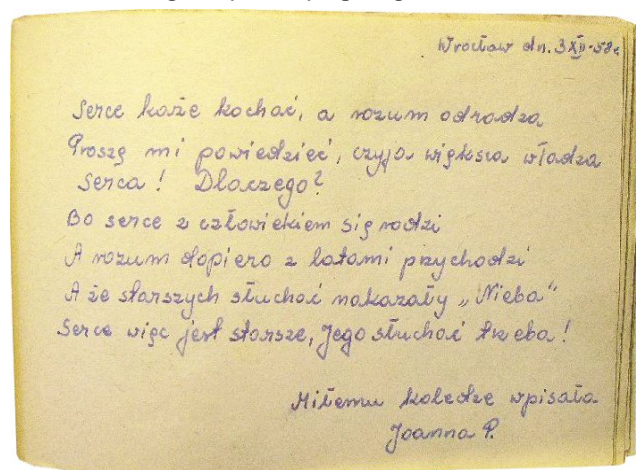 Wrocław dn. 3 XII-58r
Serce każe kochać, a rozum odradza
Proszę mi powiedzieć, czyja większa władza
Serca! Dlaczego?
Bo serce z człowiekiem się rodzi
A rozum dopiero z latami przychodzi
A że starszych słuchać nakazały „Nieba"
Serce więc jest starsze, Jego słuchać trzeba!
Miłemu koledze wpisała
Joanna P.